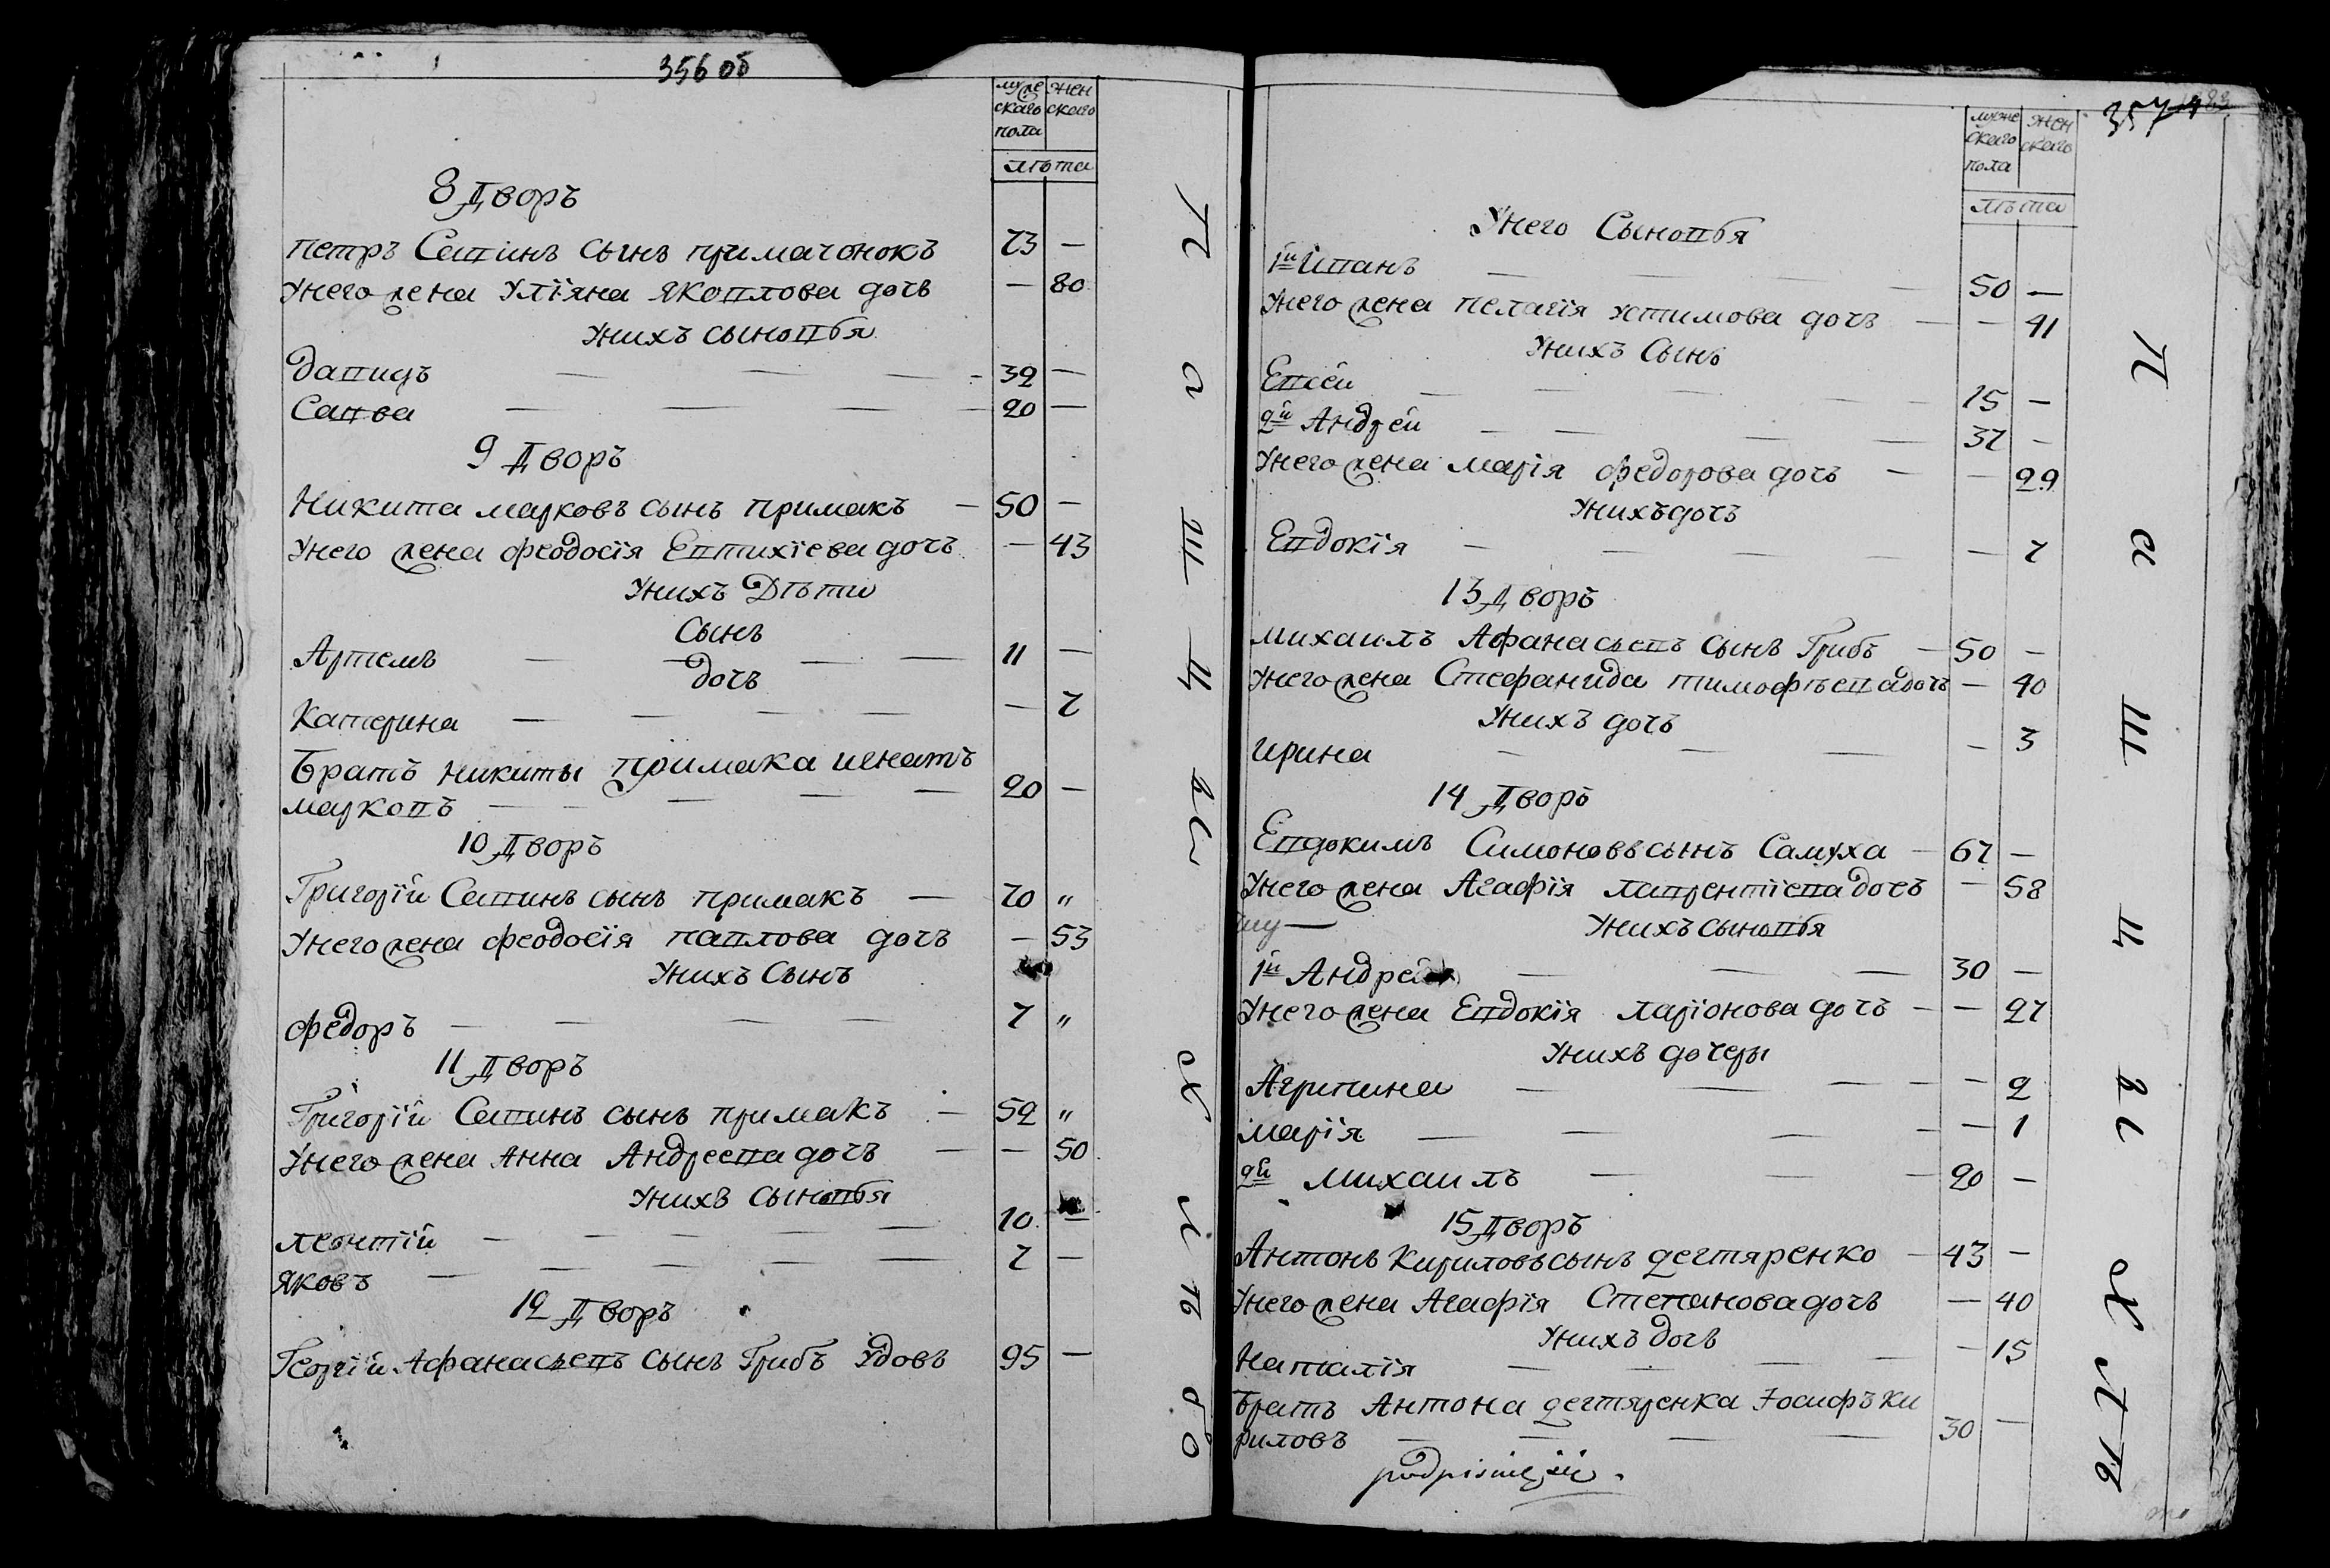 356 об
муже ского пола
жен ского
лѣта
8 Дворъ
Петръ Савинъ сынъ примачонокъ 73 —
Унего жена Улiяна Яковлова дочь — 80
Унихъ сыновья
Давидъ — — — 39 —
Савва — — — 20 —
9 Дворъ
Никита Марковъ сынъ примакъ — 50 —
Унего жена Феодосiя Евтихiева дочь — 43
Унихъ Дѣти
Сынъ
Артемъ — — — 11 —
дочь
Катерина — — — — — 7
Братъ Никиты примака игнатъ
Марковъ — — — — 20 —
10 Дворъ
Григорiй Савинъ сынъ примакъ — 70 "
Унего жена Феодосiя павлова дочь — 53
Унихъ Сынъ
Федоръ — — — — 7 "
11 Дворъ
Григорiй Савинъ сынъ примакъ — 52 "
Унего жена Анна Андреева дочь — — 50
Унихъ сыновья
Леонтiй — — — — — 10 —
Яковъ — — — — — 7 —
12 Дворъ
Георгiй Афанасьевъ сынъ Грибъ Удовъ 95 —
П а ш ц
357
муже ского пола
жен ского
лѣта
Унего Сыновья
1й Иванъ — — — 50 —
Унего жена пелагiя устимова дочь — — 41
Унихъ Сынъ
Евсей — — — — 15 —
2й Андрей — — — — 37 —
Унего жена марiя федорова дочь — — 29
Унихъ дочь
Евдокiя — — — — — 7
13 Дворъ
Михаилъ Афанасьевъ сынъ Грибъ — 50 —
Унего жена Стефанида тимофѣева дочь — 40
Унихъ дочь
ирина — — — — 3
14 Дворъ
Евдокимъ Симоновъ сынъ Самуха — 67 —
Унего жена Агафiя лаврентiева дочь — 58
Унихъ сыновья
1й Андрей — — — 30 —
Унего жена Евдокiя ларiонова дочь — — 27
Унихъ дочеры
Агрипина — — — — — 2
марiя — — — — — 1
2й михаилъ — — — 20 —
15 Дворъ
Антонъ Кириловъ сынъ дегтяренко — 43 —
Унего жена Агафiя Степанова дочь — 40
Унихъ дочь
Наталiя — — — — — 15
Братъ Антона дегтяренка Iосифъ Ки
риловъ — — — — 30 —
П а ш ц